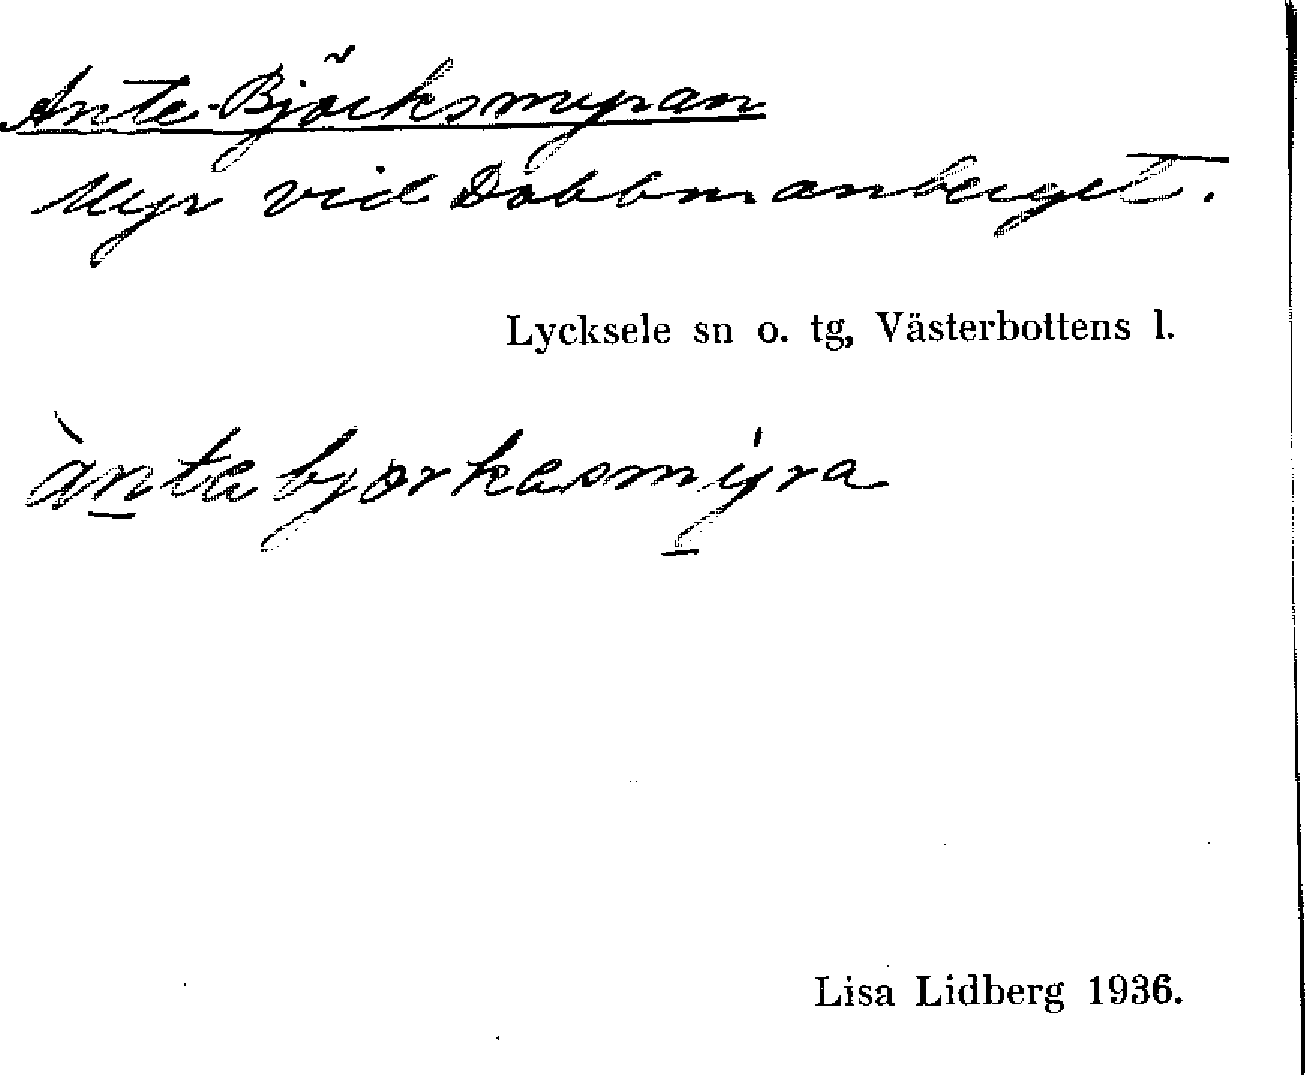 Ante-Björksmyran
Myr vid Dobbmanberget.
Lycksele sn o. tg, Västerbottens l.
ànta bjørkasmýra
Lisa Lidberg 1936.